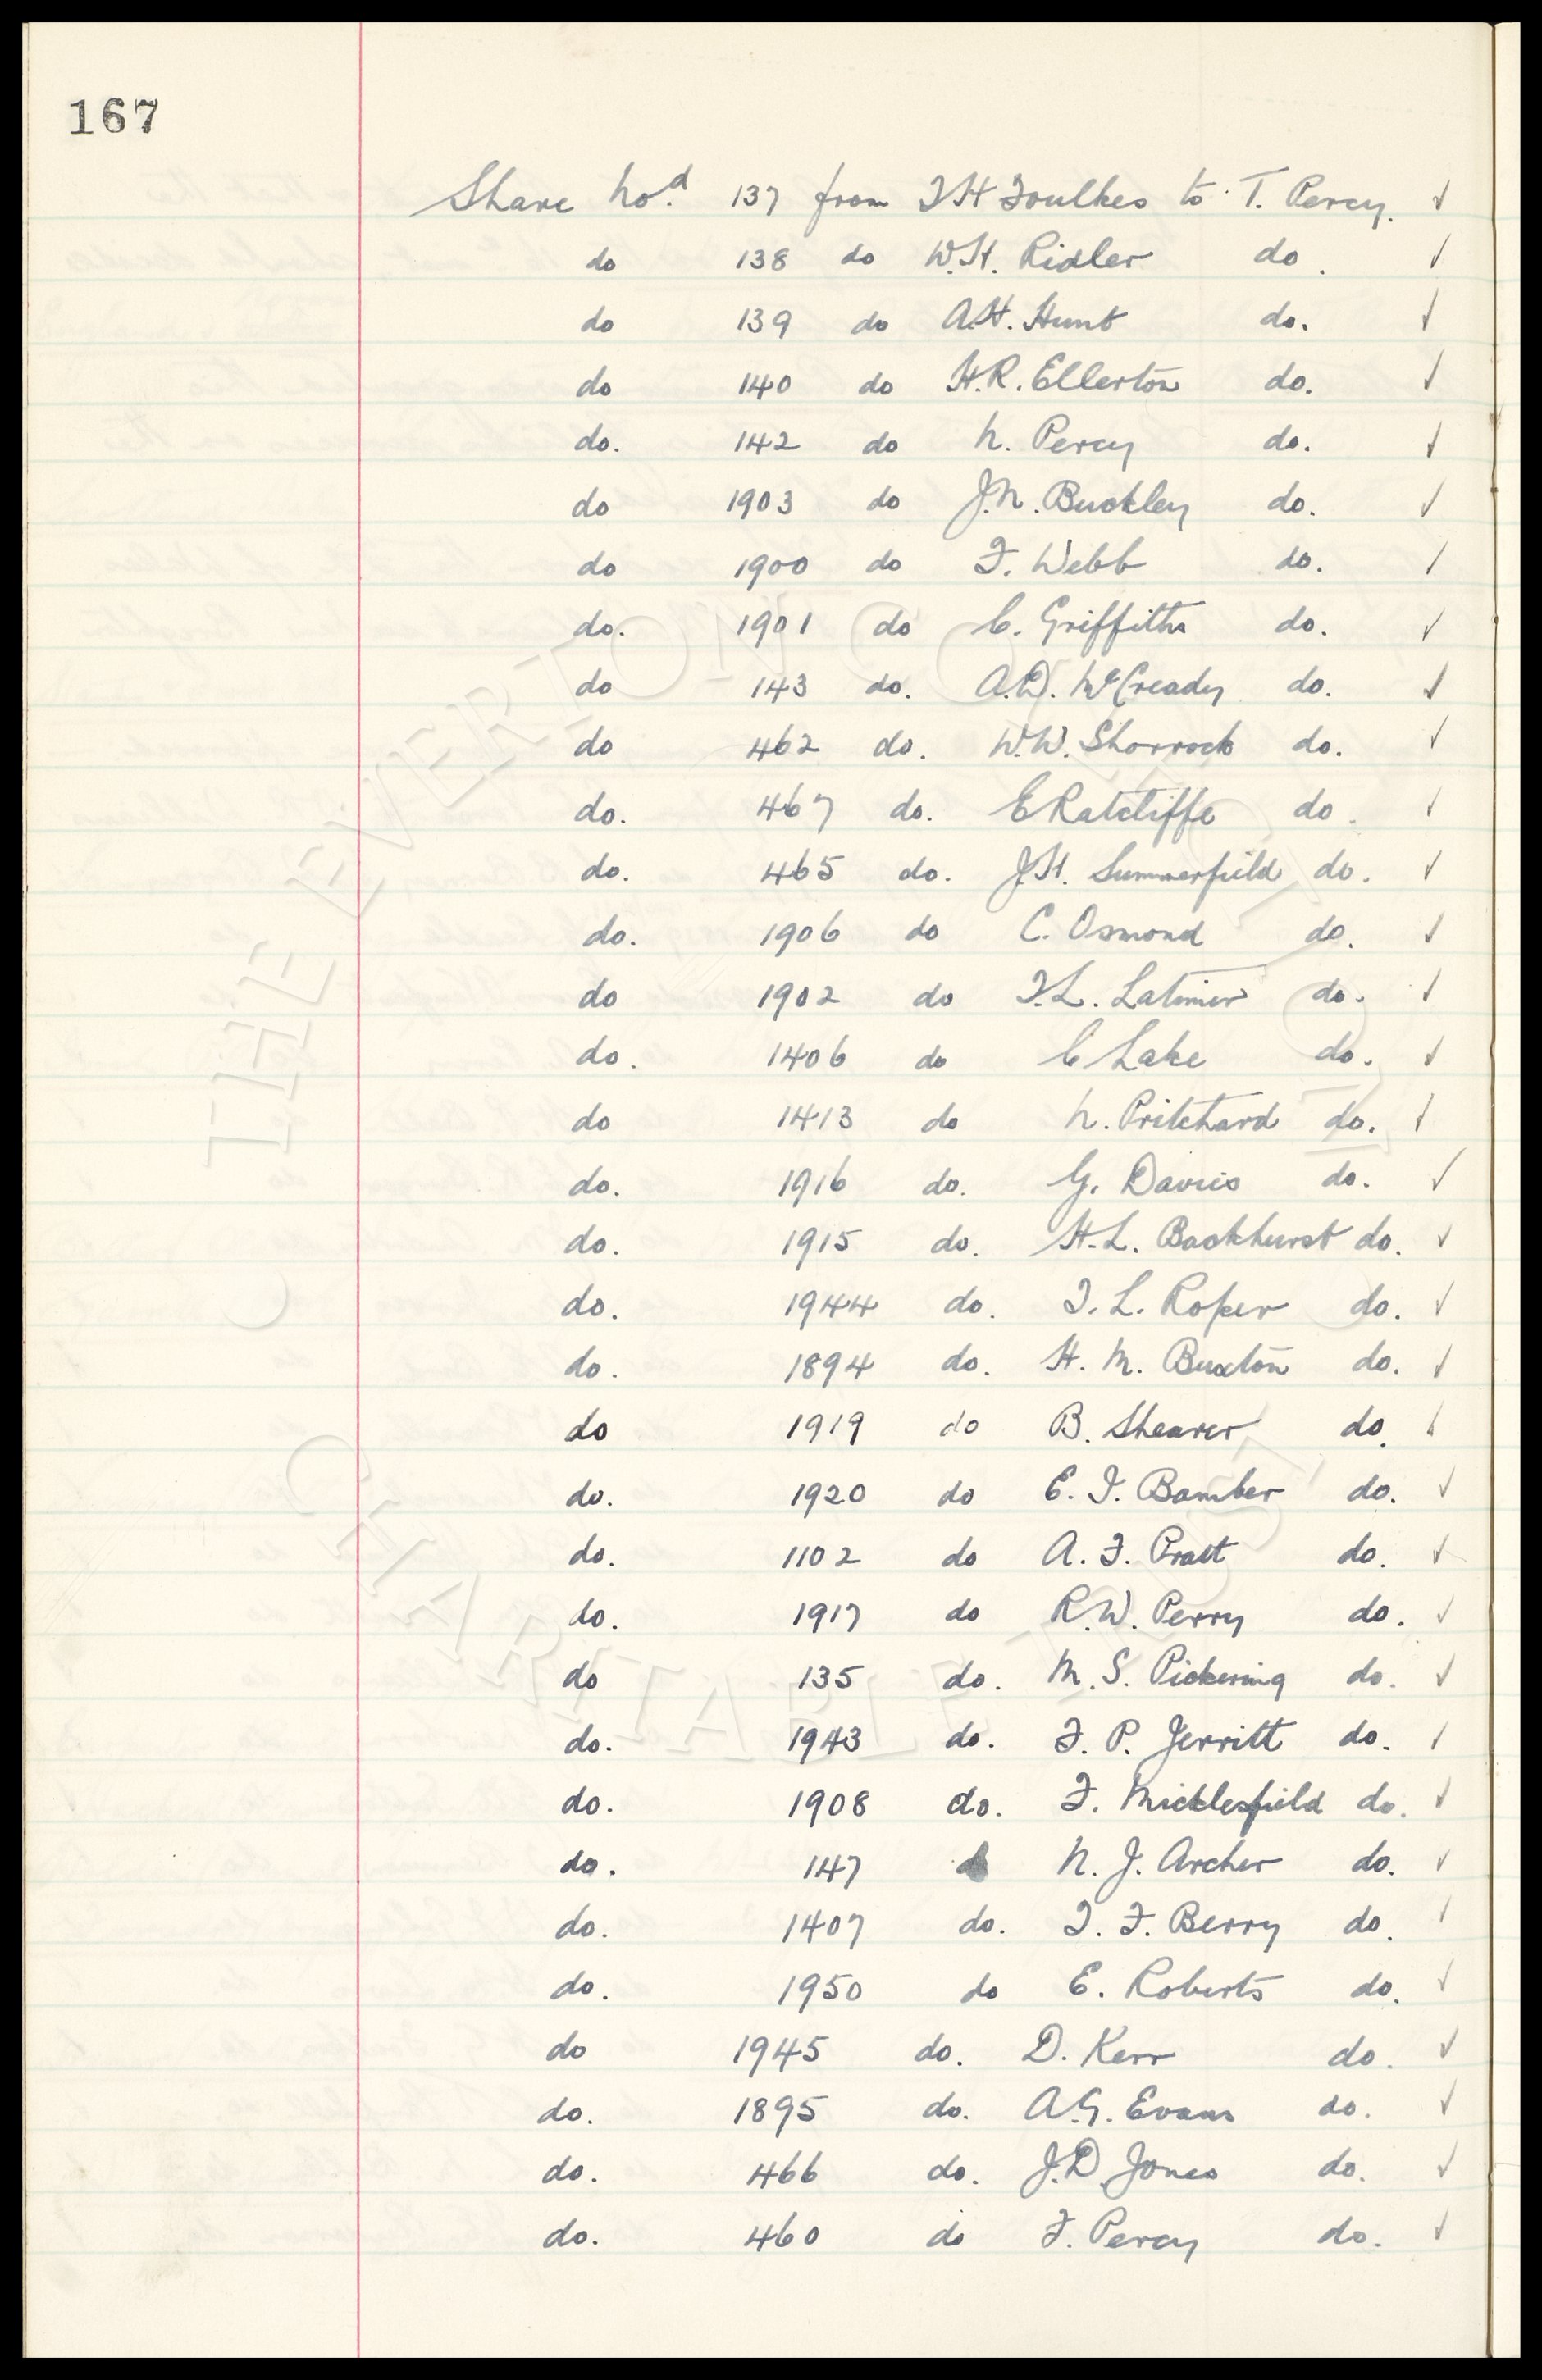 167
Share No.d 137 from T H Foulkes to T. Percy. ✓
do 138 do W.H. Ridler do. ✓
do 139 do A.H. Hunt do. ✓
do 140 do H.R. Ellerton do. ✓
do. 142 do N. Percy do. ✓
do 1903 do J.N. Buckley do. ✓
do 1900 do F. Webb do. ✓
do. 1901 do C. Griffiths do. ✓
do 143 do. A.D. McCready do. ✓
do 462 do. W.W. Shorrock do. ✓
do. 467 do. E Ratcliffe do. ✓
do. 465 do. J.H. Summerfield do. ✓
do. 1906 do C. Osmond do. ✓
do 1902 do T.L. Latimer do. ✓
do. 1406 do C Lake do. ✓
do 1413 do N. Pritchard do. ✓
do. 1916 do. G. Davies do. ✓
do. 1915 do. H.L. Backhurst do. ✓
do. 1944 do. T. L. Roper do. ✓
do. 1894 do. H. M. Buxton do. ✓
do 1919 do B. Shearer do. ✓
do. 1920 do E. J. Bamber do. ✓
do. 1102 do A. F. Pratt do. ✓
do. 1917 do R.W. Perry do. ✓
do 135 do. M. S. Pickering do. ✓
do. 1943 do. F. P. Jerritt do. ✓
do. 1908 do. F. Micklesfield do. ✓
do. 147 d N. J. Archer do. ✓
do. 1407 do. T. F. Berry do. ✓
do. 1950 do E. Roberts do. ✓
do 1945 do. D. Kerr do. ✓
do. 1895 do. A.G. Evans do. ✓
do. 466 do. J.D. Jones do. ✓
do. 460 do F. Percy do. ✓
THE EVERTON COLLECTION
CHARITABLE TRUST